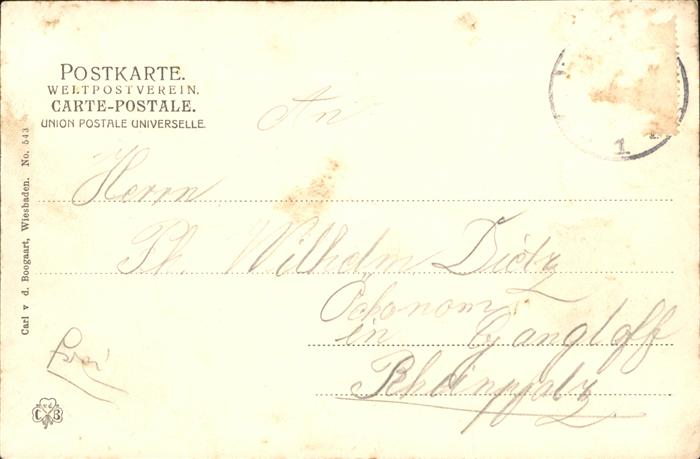 POSTKARTE.
WELTPOSTVEREIN.
CARTE-POSTALE.
UNION POSTALE UNIVERSELLE.
An
Herrn
Ph. Wilhelm Dietz
Oekonom
in Gangloff
Rheinpfalz
Carl v d. Boogaart, Wiesbaden. No. 543
C B
1